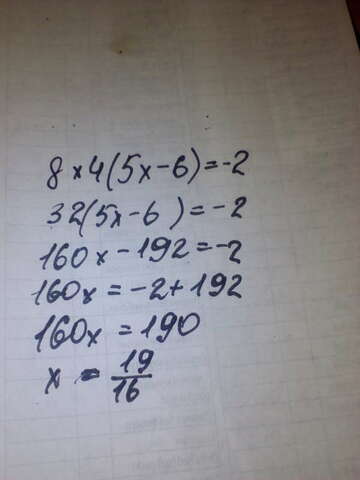 8x4(5x-6)=-2
32(5x-6)=-2
160x-192=-2
160x=-2+192
160x=190
x=19/16